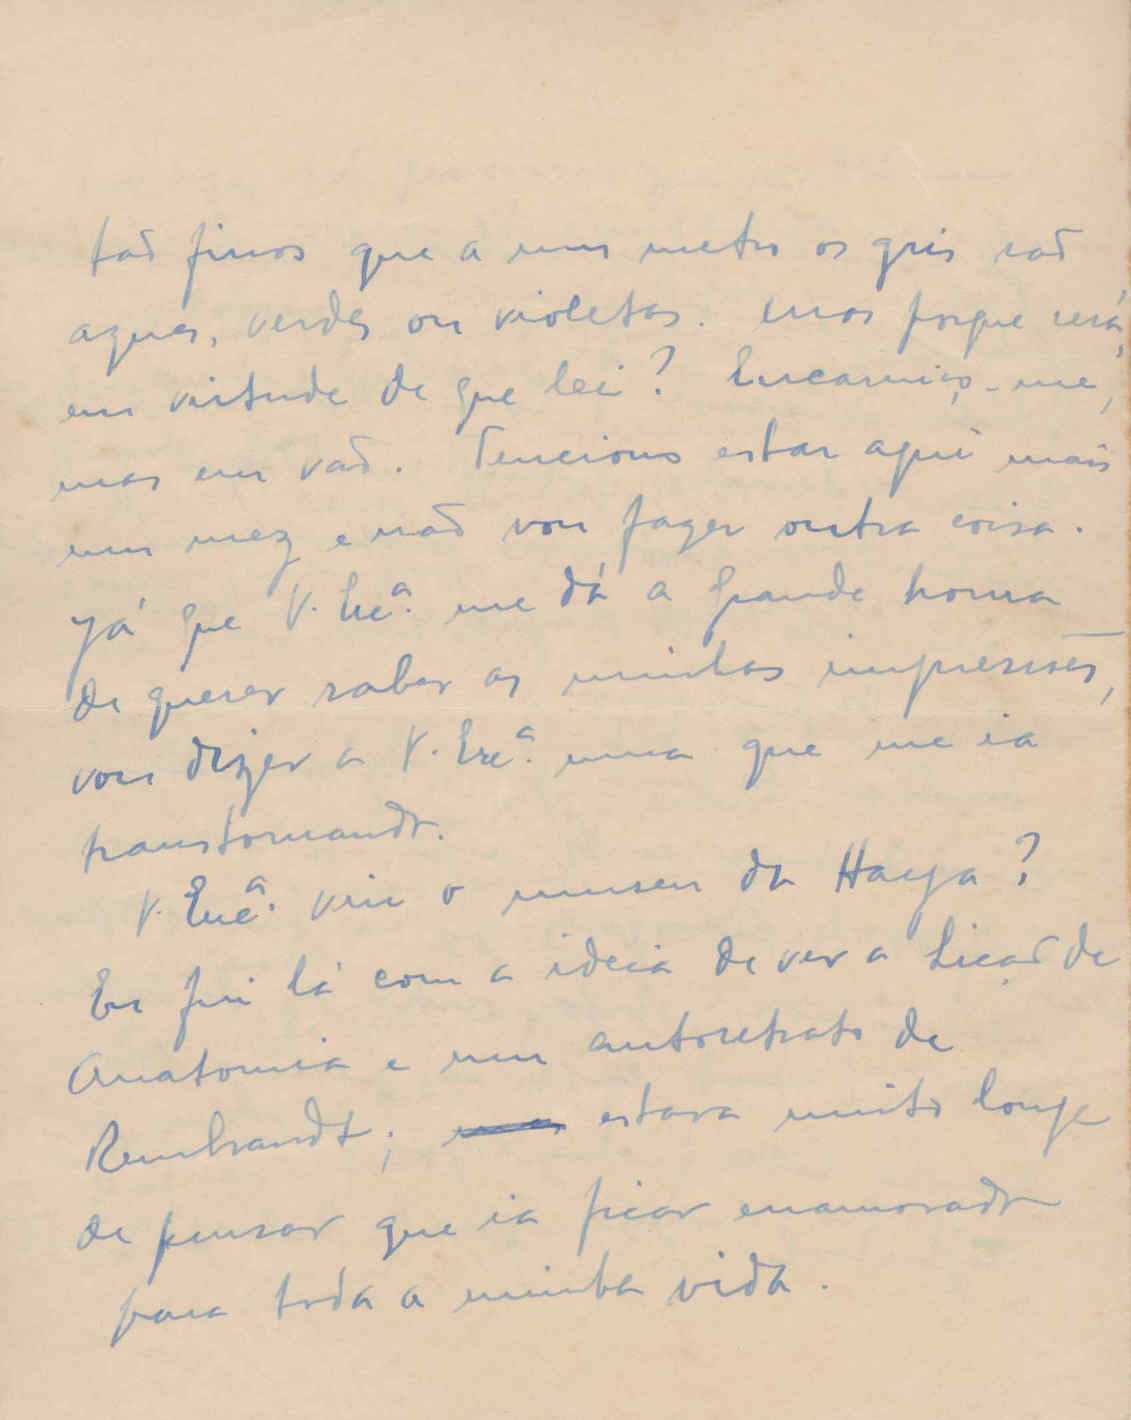 tão finos que a um metro os gris são
azues, verdes ou violetas. Mas porque será,
em virtude de que lei? Encarniço-me,
mas em vão. Tenciono estar aqui mais
um mez e não vou fazer outra coisa.
Já que V. Exc.ª me dá a grande honra
de querer saber as minhas impressões,
vou dizer a V. Exc.ª uma que me ia
transtornando.
V. Exc.ª viu o museu da Haya?
Eu fui lá com a ideia de ver a Lição de
Anatomia e um autoretrato de
Rembrandt; mas estava muito longe
de pensar que ia ficar enamorado
para toda a minha vida.